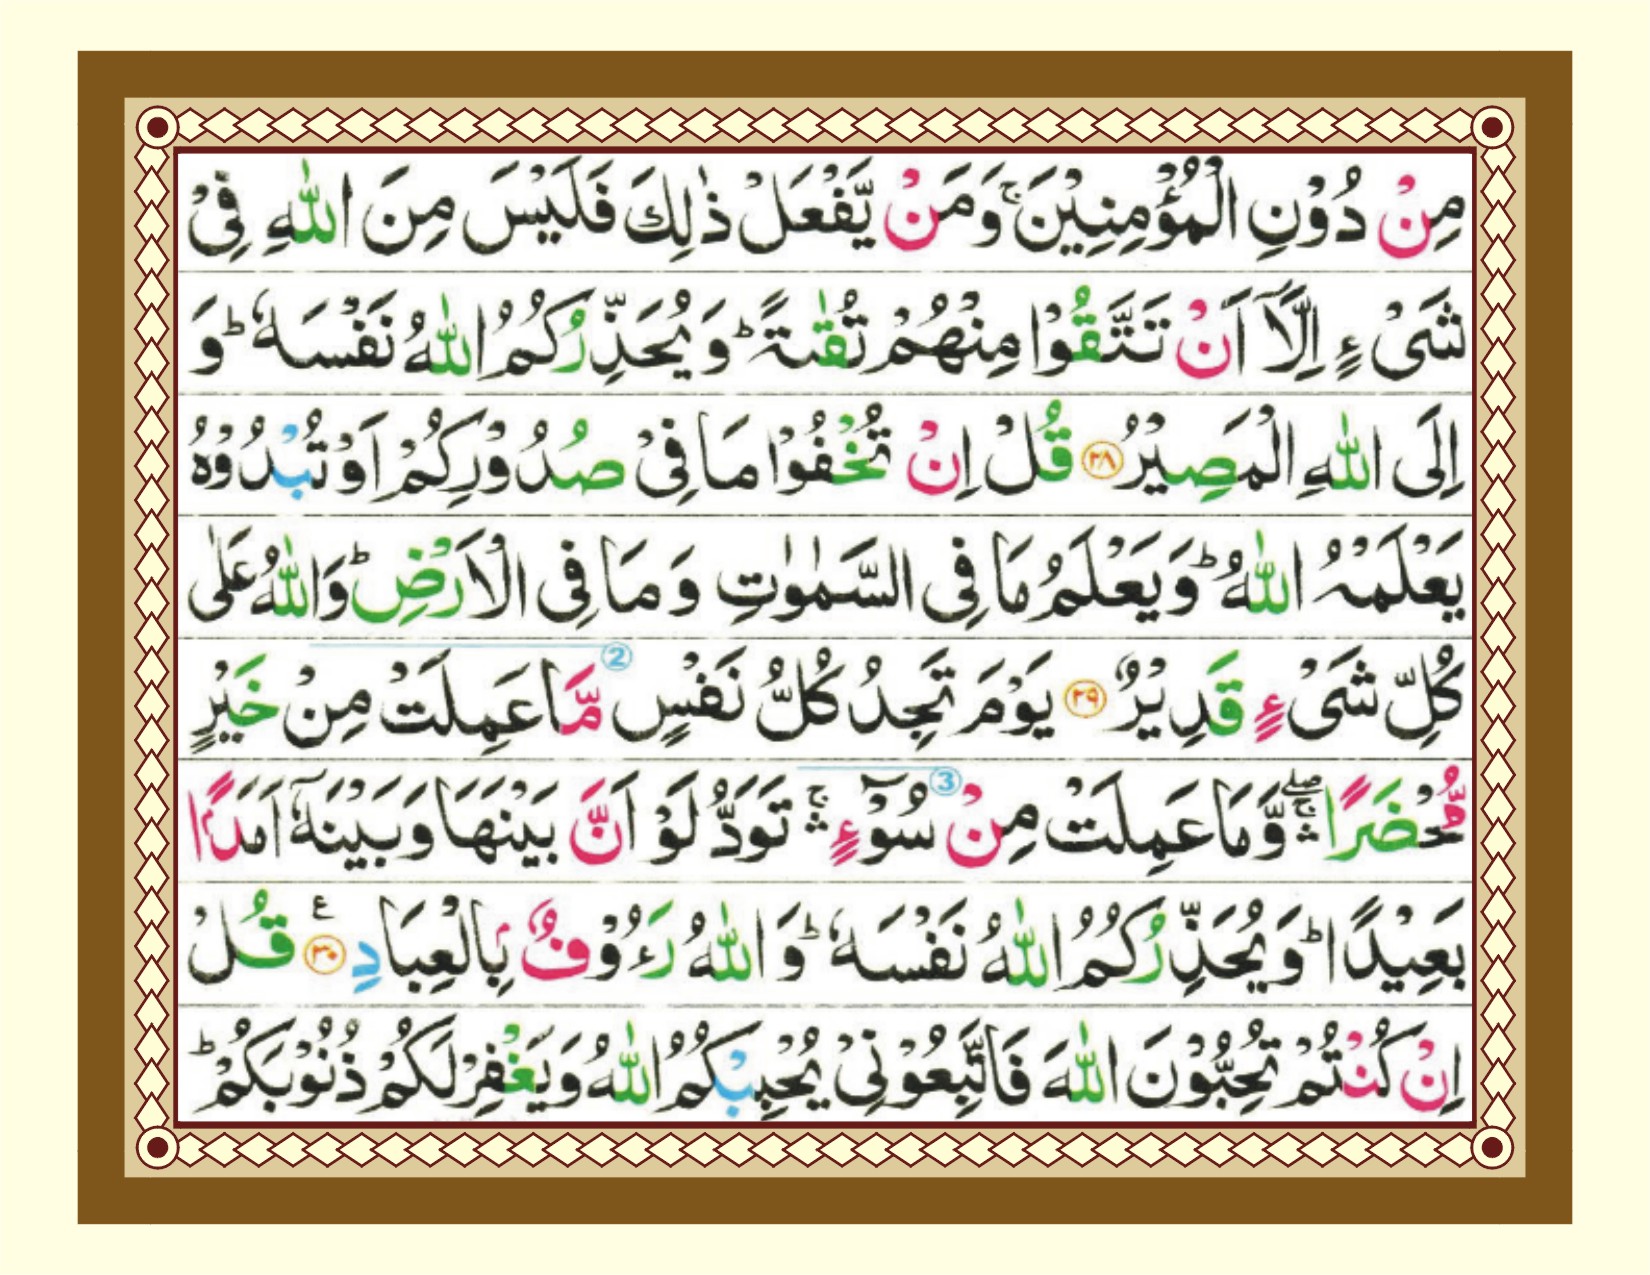 مِنْ دُوْنِ الْمُؤْمِنِيْنَ ۚ وَمَنْ يَّفْعَلْ ذٰلِكَ فَلَيْسَ مِنَ اللّٰهِ فِيْ
شَيْءٍ اِلَّاۤ اَنْ تَتَّقُوْا مِنْهُمْ تُقٰىةً ؕ وَيُحَذِّرُكُمُ اللّٰهُ نَفْسَهٗ ؕ وَ
اِلَى اللّٰهِ الْمَصِيْرُ ۝۲۸ قُلْ اِنْ تُخْفُوْا مَا فِيْ صُدُوْرِكُمْ اَوْ تُبْدُوْهُ
يَعْلَمْهُ اللّٰهُ ؕ وَيَعْلَمُ مَا فِي السَّمٰوٰتِ وَمَا فِي الْاَرْضِ ؕ وَاللّٰهُ عَلٰى
كُلِّ شَيْءٍ قَدِيْرٌ ۝۲۹ يَوْمَ تَجِدُ كُلُّ نَفْسٍ ② مَّا عَمِلَتْ مِنْ خَيْرٍ
مُّحْضَرًا ۛۚۖ وَّمَا عَمِلَتْ مِنْ ③ سُوْٓءٍ ۛۚ تَوَدُّ لَوْ اَنَّ بَيْنَهَا وَبَيْنَهٗۤ اَمَدًۢا
بَعِيْدًا ؕ وَيُحَذِّرُكُمُ اللّٰهُ نَفْسَهٗ ؕ وَاللّٰهُ رَءُوْفٌۢ بِالْعِبَادِ ۝۳۰ ع قُلْ
اِنْ كُنْتُمْ تُحِبُّوْنَ اللّٰهَ فَاتَّبِعُوْنِيْ يُحْبِبْكُمُ اللّٰهُ وَيَغْفِرْ لَكُمْ ذُنُوْبَكُمْ ؕ